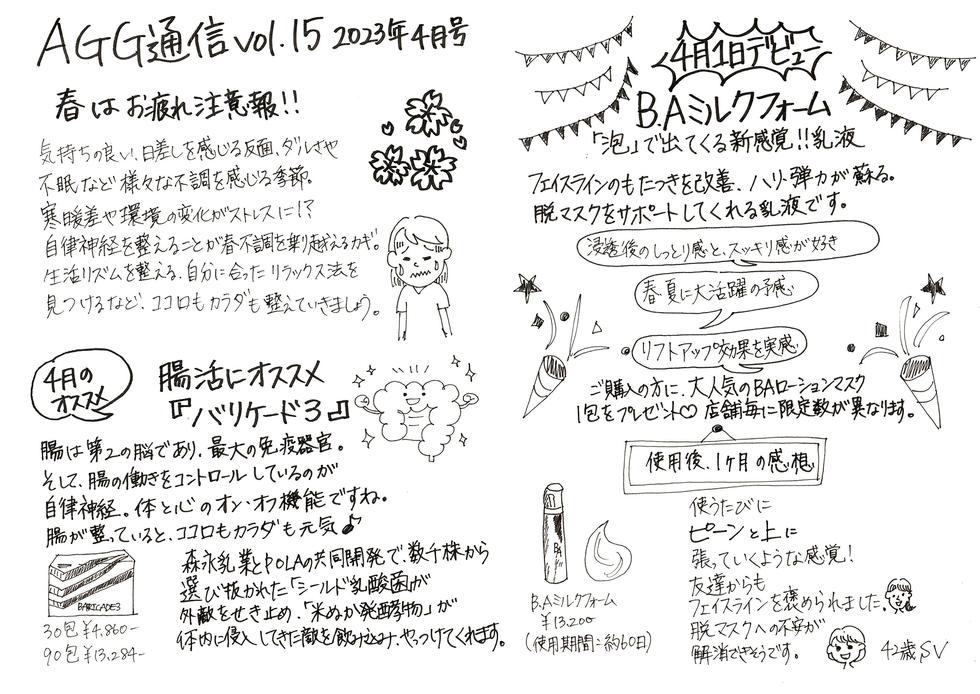 AGG通信 vol.15 2023年4月号
春はお疲れ注意報!!
気持ちの良い、日差しを感じる反面、ダルさや
不眠など様々な不調を感じる季節。
寒暖差や環境の変化がストレスに!?
自律神経を整えることが春不調を乗り越えるカギ。
生活リズムを整える、自分に合ったリラックス法を
見つけるなど、ココロもカラダも整えていきましょう。
4月の
オススメ
腸活にオススメ
『バリケード3』
腸は第2の脳であり、最大の免疫器官。
そして、腸の働きをコントロールしているのが
自律神経。体と心のオン・オフ機能ですね。
腸が整っていると、ココロもカラダも元気♪
BARICADE3
30包 ¥4,860-
90包 ¥13,284-
森永乳業とPOLAの共同開発で、数千株から
選び抜かれた「シールド乳酸菌」が
外敵をせき止め、「米ぬか発酵物」が
体内に侵入してきた敵を飲み込み、やっつけてくれます。
4月1日デビュー
B.Aミルクフォーム
「泡」で出てくる新感覚!!乳液
フェイスラインのもたつきを改善、ハリ・弾力が蘇る。
脱マスクをサポートしてくれる乳液です。
浸透後のしっとり感と、スッキリ感が好き
春・夏に大活躍の予感
リフトアップ効果を実感
ご購入の方に、大人気のBAローションマスク
1包をプレゼント♡ 店舗毎に限定数が異なります。
使用後、1ヶ月の感想
BA
B.Aミルクフォーム
¥13,200
(使用期間:約60日)
使うたびに
ピーンと上に
張っていくような感覚!
友達からも
フェイスラインを褒められました。
脱マスクへの不安が
解消できそうです。
42歳SV